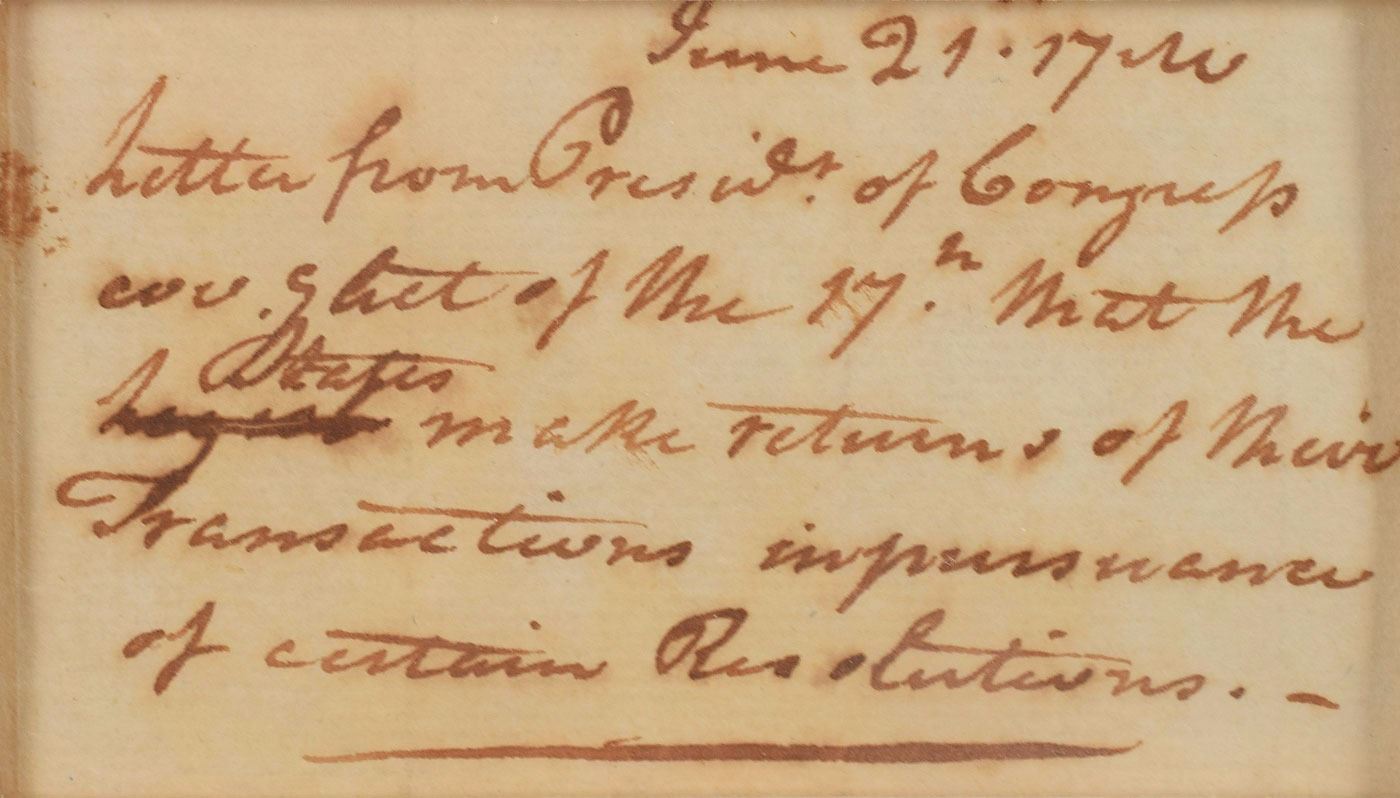 June 21.
Letter from Presid.t of Congress
cov.g Act of the 17.th that the
States
make returns of their
Transactions in pursuance
of certain Resolutions. –